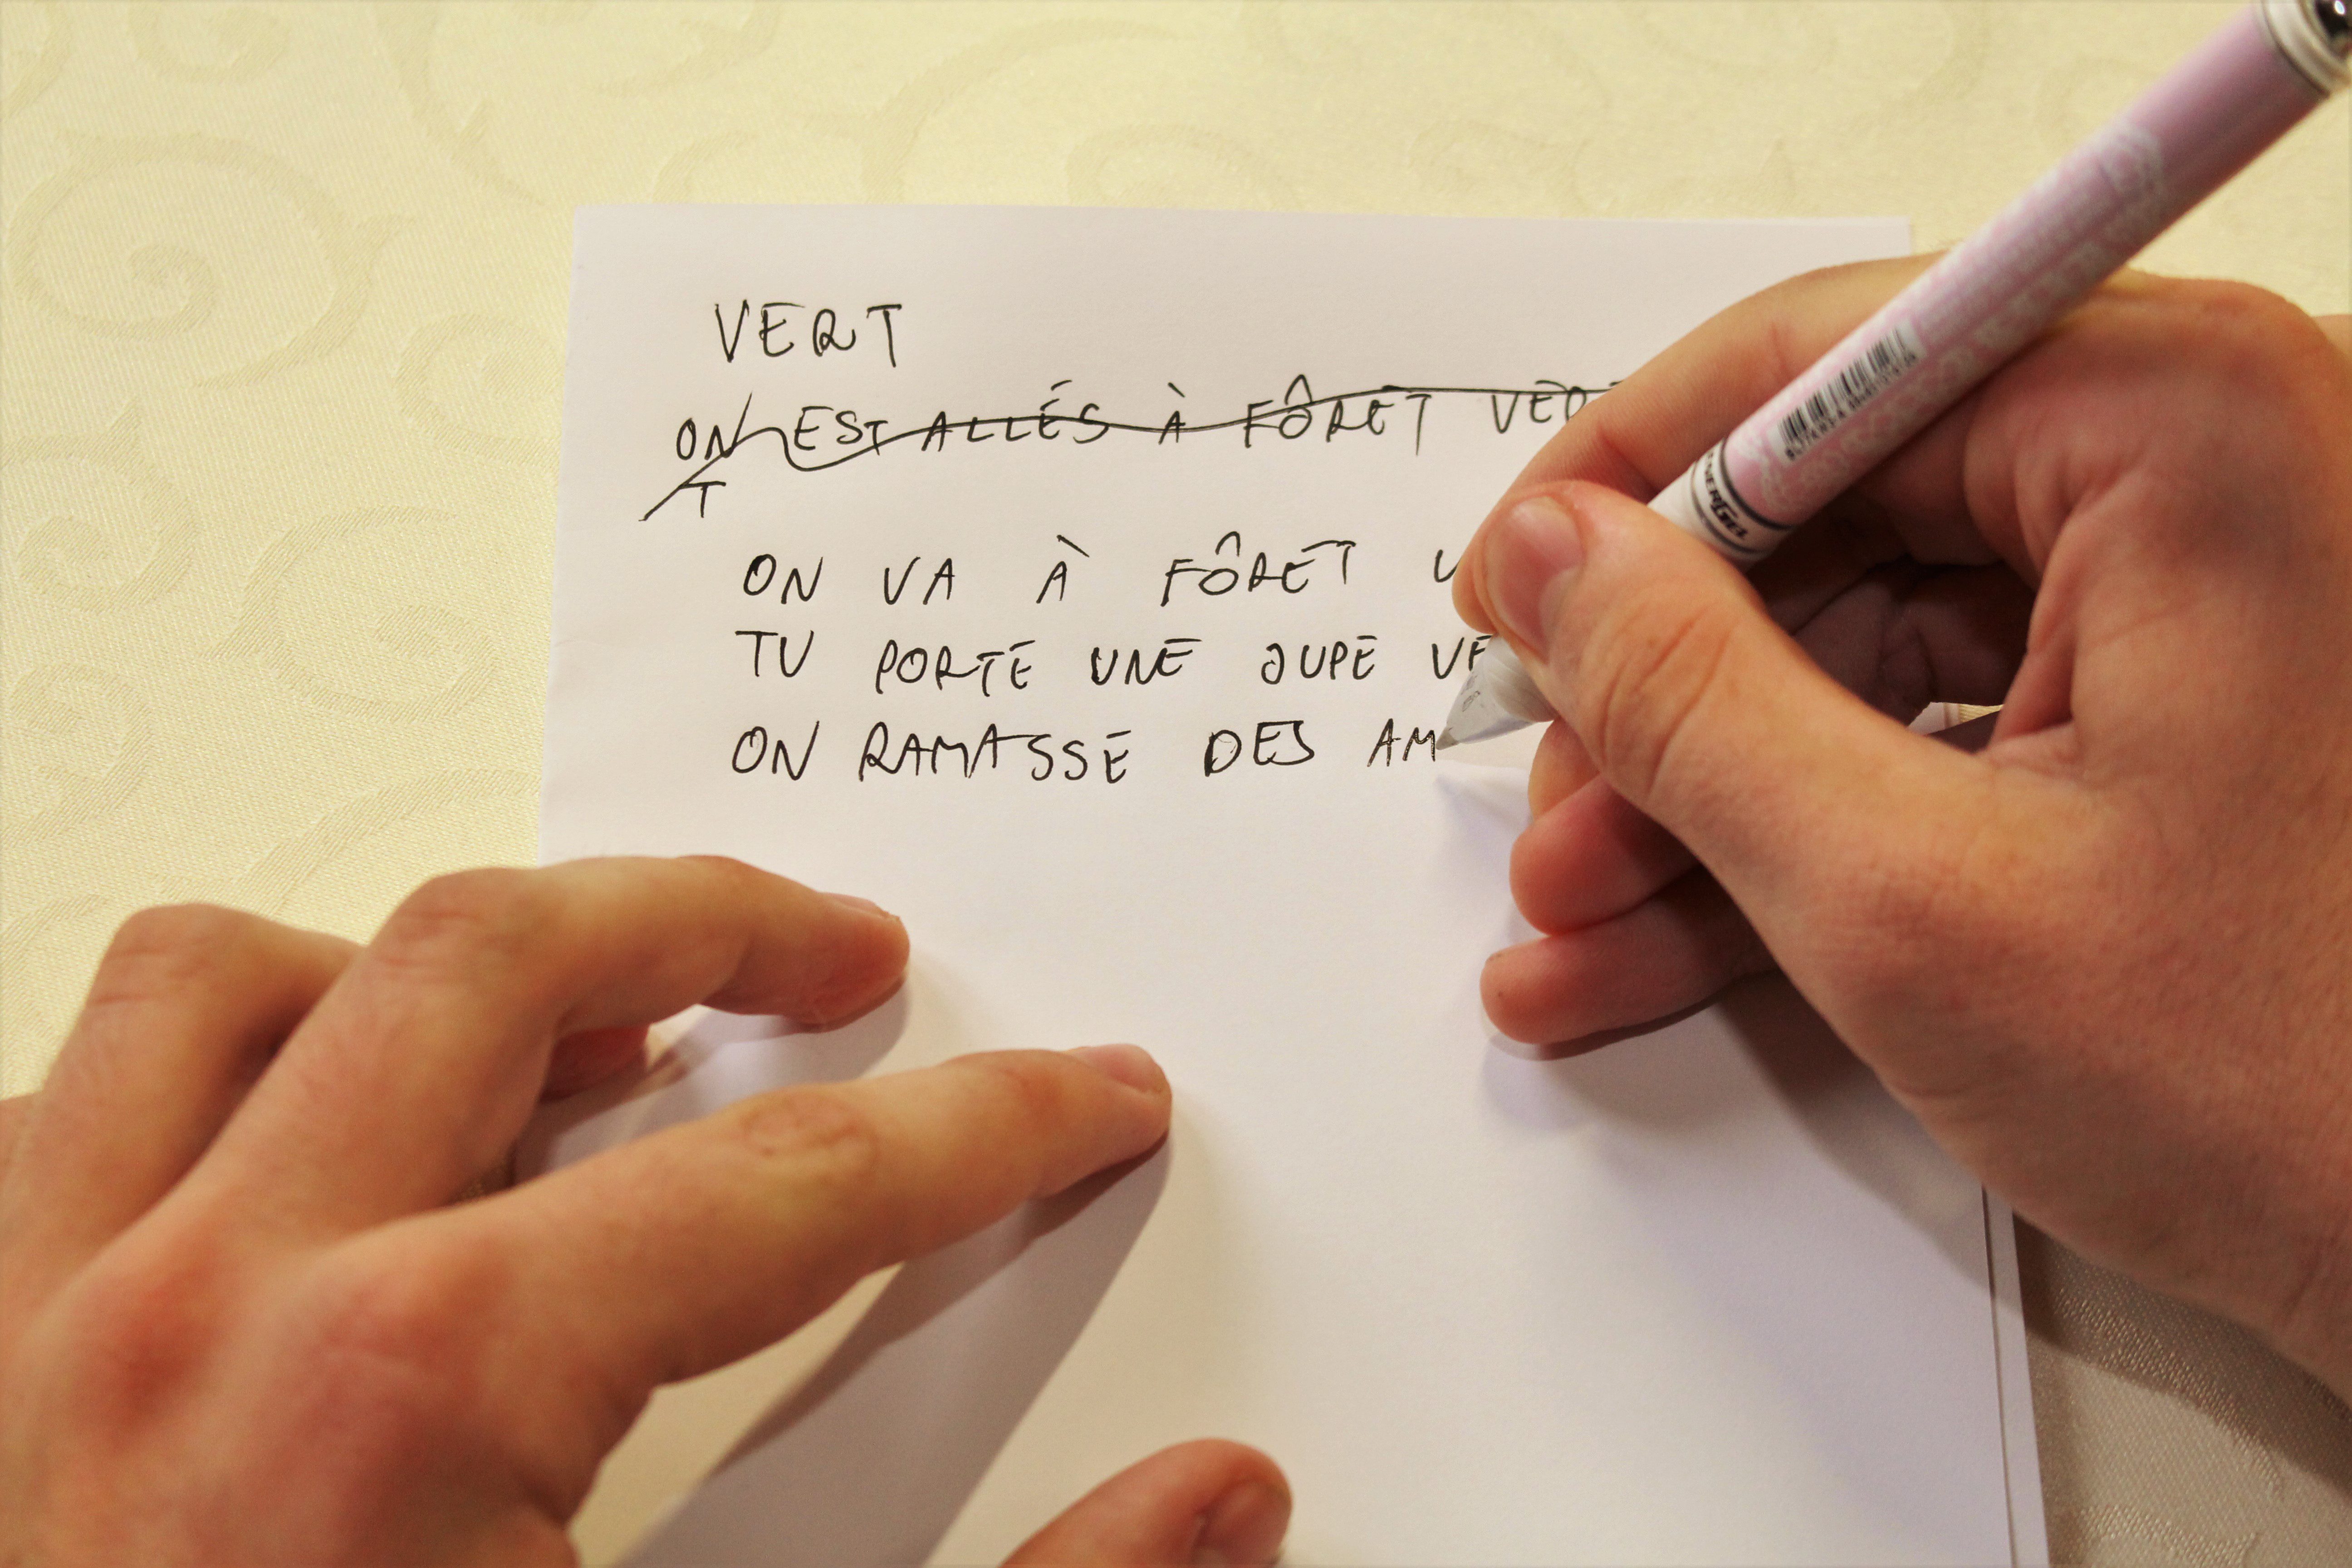 VERT
ON EST ALLÉS À FÔRET
T
ON VA À FÔRET
TU PORTE UNE JUPE
ON RAMASSE DES AM